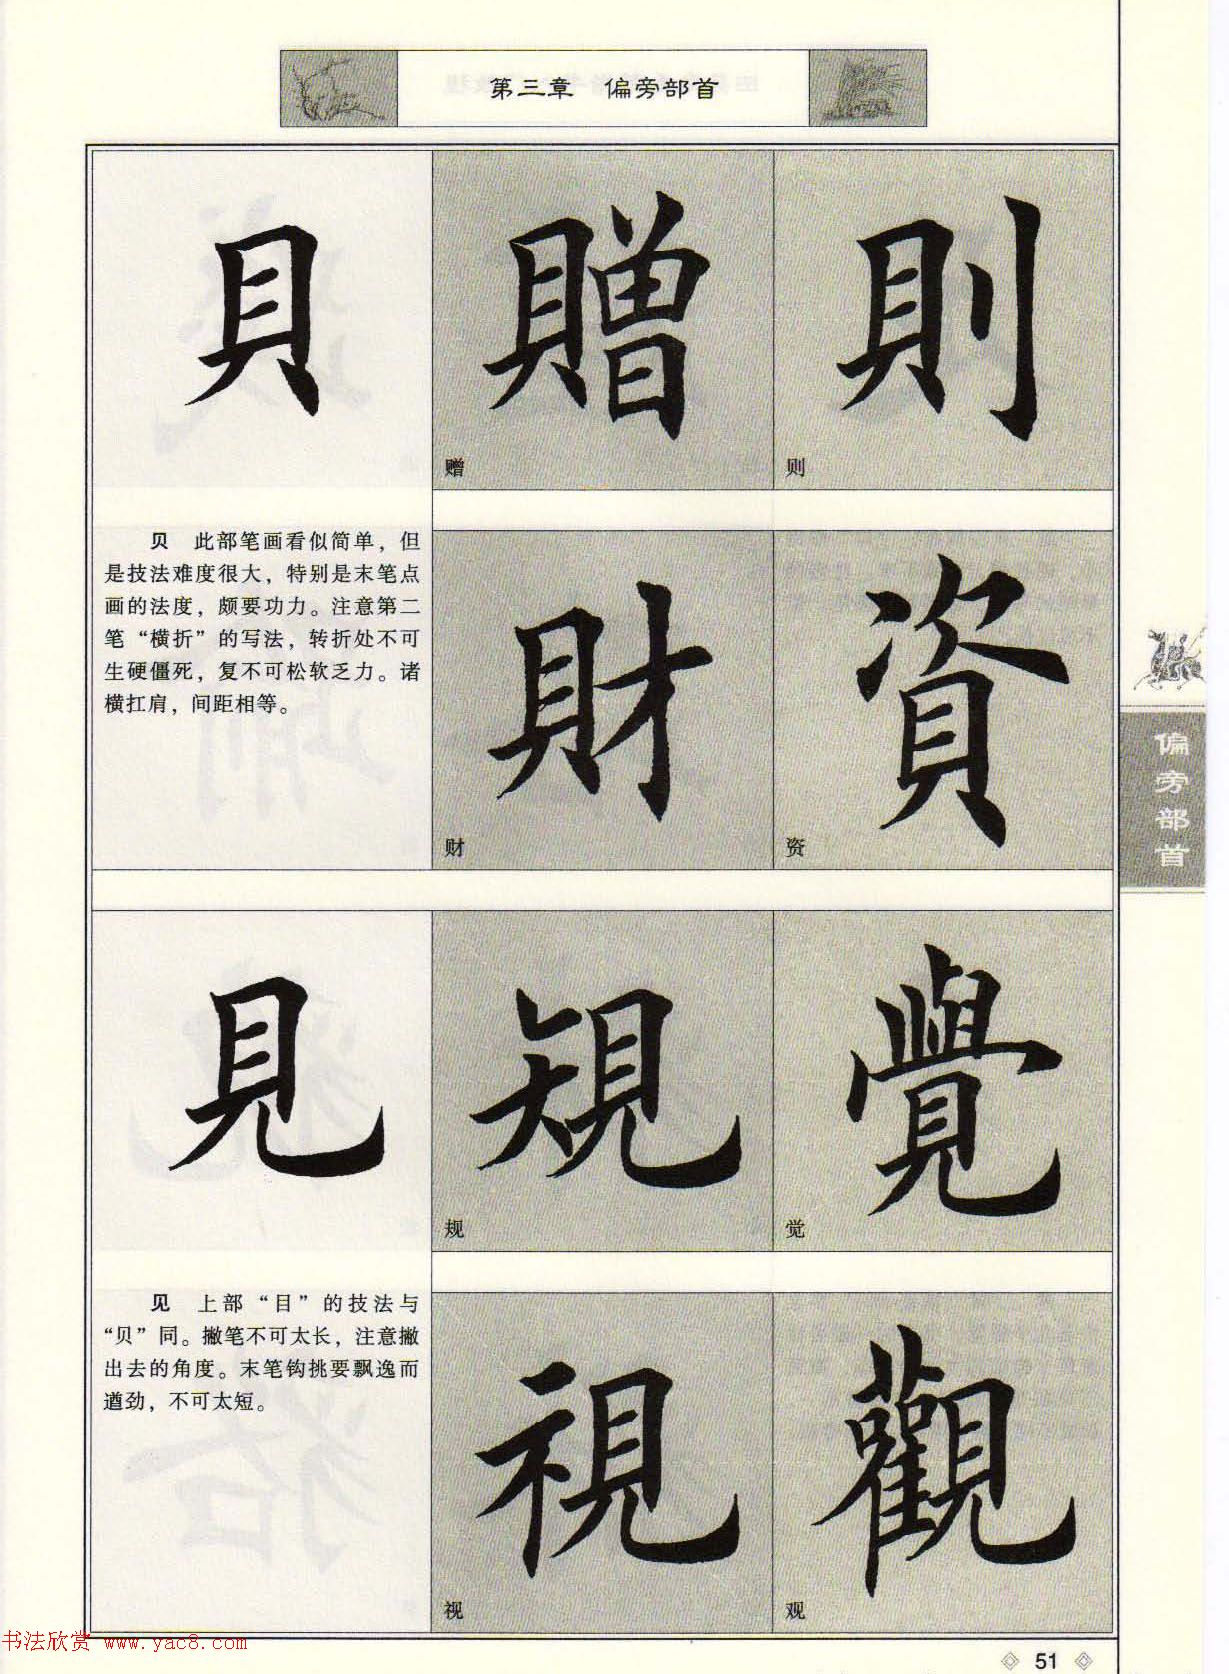 第三章　偏旁部首
貝 贈 則
赠 则
贝　此部笔画看似简单，但
是技法难度很大，特别是末笔点
画的法度，颇要功力。注意第二
笔“横折”的写法，转折处不可
生硬僵死，复不可松软乏力。诸
横扛肩，间距相等。
財 資
财 资
偏旁部首
見 規 覺
规 觉
见　上部“目”的技法与
“贝”同。撇笔不可太长，注意撇
出去的角度。末笔钩挑要飘逸而
遒劲，不可太短。
視 觀
视 观
书法欣赏 www.yac8.com
51